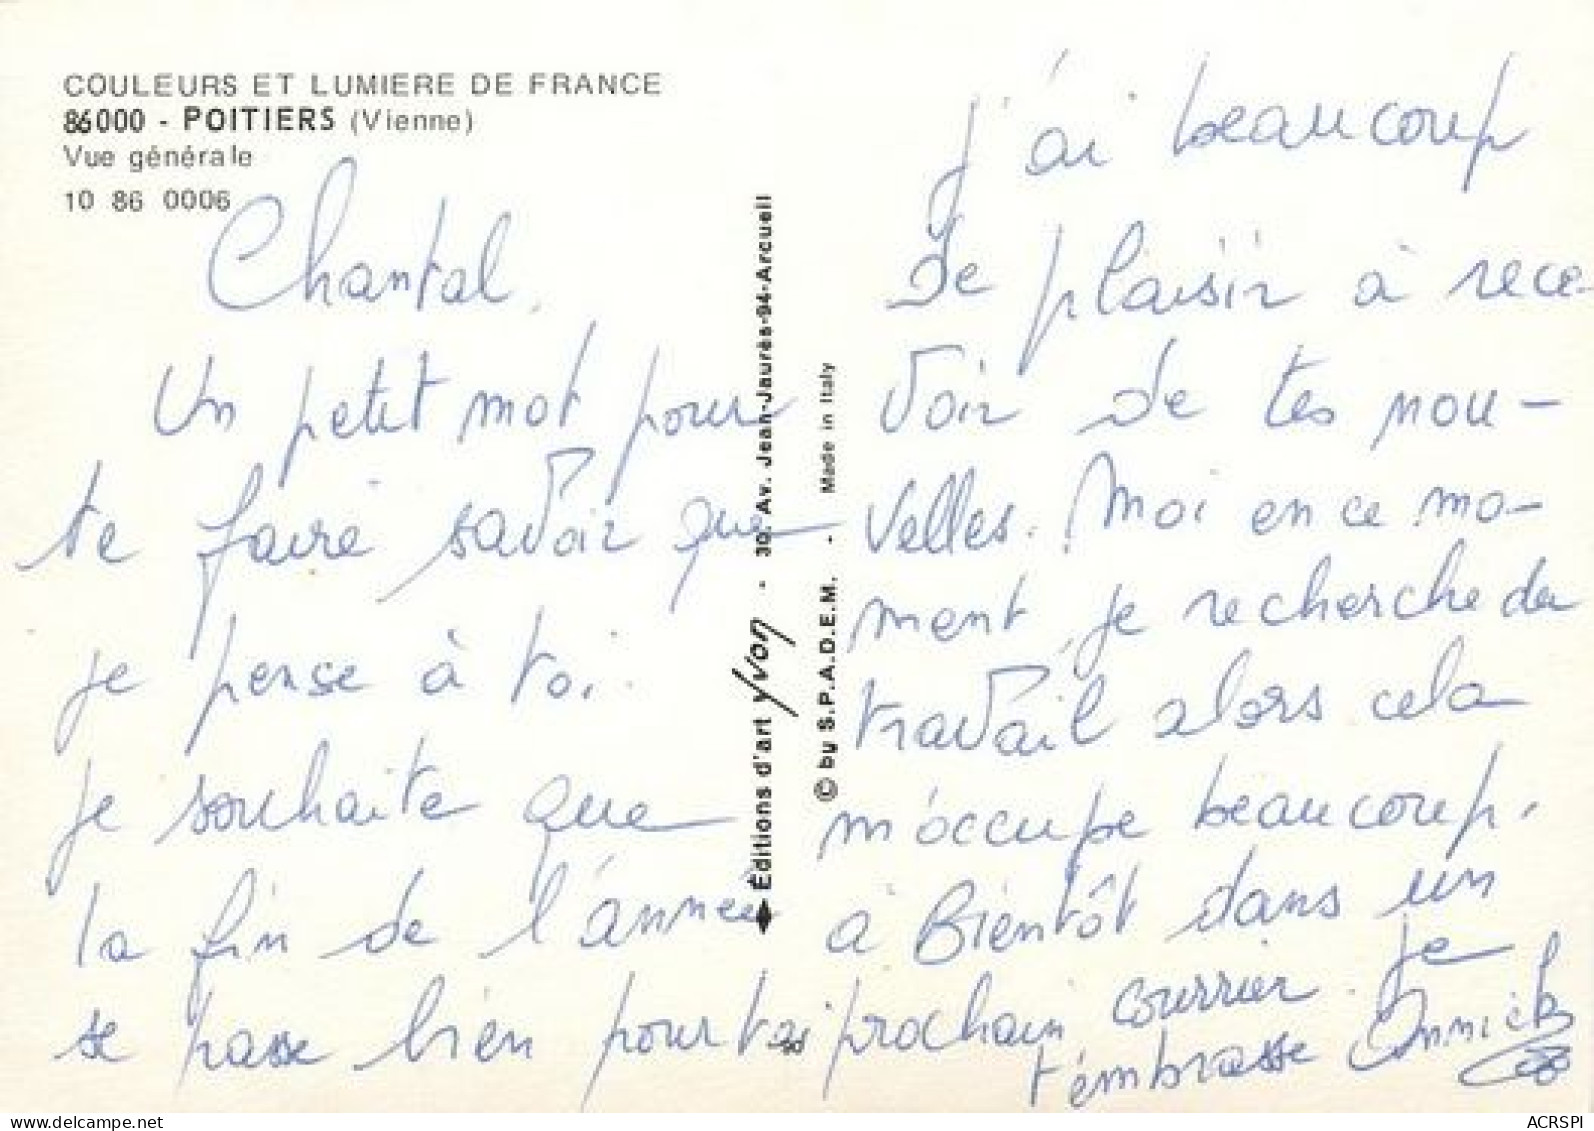 COULEURS ET LUMIERE DE FRANCE
86000 - POITIERS (Vienne)
Vue générale
10 86 0006
Chantal,
Un petit mot pour
te faire savoir que
je pense à toi.
je souhaite que
la fin de l'année
se passe bien pour toi
Éditions d'art Yvon - 30, Av. Jean-Jaurès-94-Arcueil
© by S.P.A.D.E.M. - Made in Italy
J'ai beaucoup
de plaisir à rece-
voir de tes nou-
velles. Moi en ce mo-
ment, je recherche du
travail alors cela
m'occupe beaucoup.
à Bientôt dans un
prochain courrier. je
t'embrasse Annick
ACRSPI